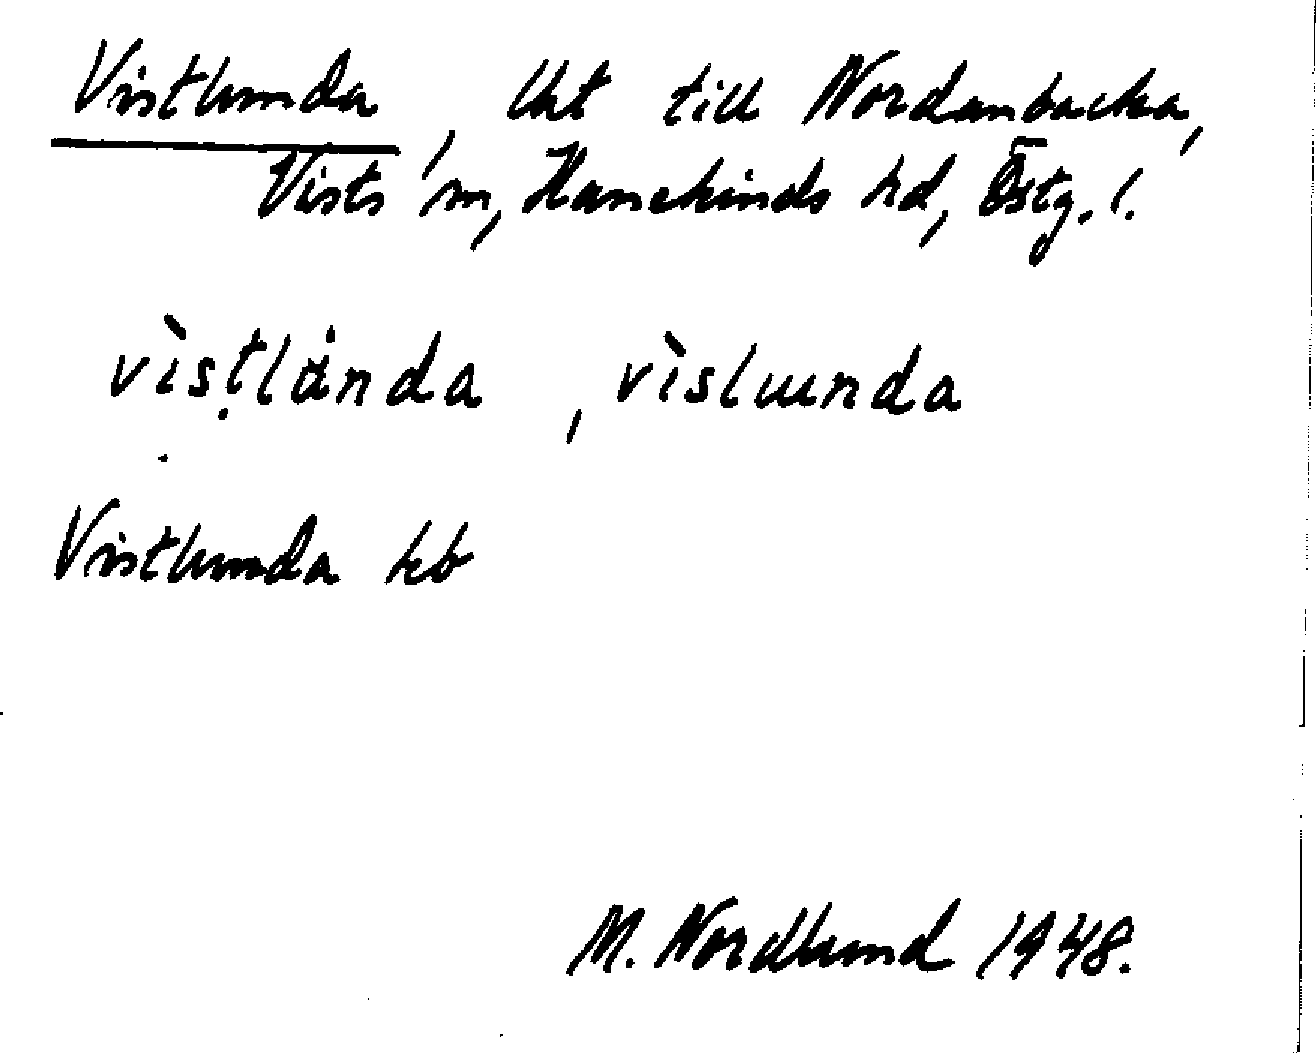 Vistlunda, lht till Nordanbacka,
Vists sn, Hanekinds hd, Östg. l.
vìstlånda, vìslunda
Vistlunda kb
M. Nordlund 1948.